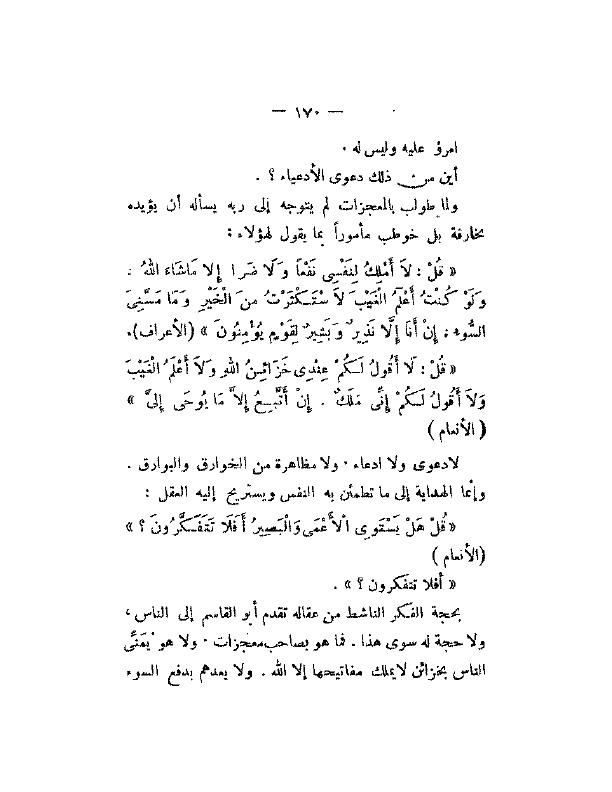 — ١٧٠ —
امرؤ عليه وليس له .
أين من ذلك دعوى الأدعياء ؟ .
ولما طولب بالمعجزات لم يتوجه إلى ربه يسأله أن يؤيده
بخارقة بل خوطب مأموراً بما يقول لهؤلاء :
« قُلْ : لاَ أَمْلِكُ لِنَفْسِي نَفْعاً وَلَا ضَرا إِلا مَاشَاءَ اللهُ .
وَلَوْ كُنْتُ أَعْلَمُ الْغَيْبَ لاَ سْتَكْثَرْتُ مِنَ الْخَيْرِ وَمَا مَسَّنِيَ
السُّوء ; إِنْ أَنَا إِلَّا نَذِيرٌ وَبَشِيرٌ لِقَوْمٍ يُؤْمِنُونَ » (الأعراف).
« قُلْ : لَا أَقُولُ لَكُمْ عِنْدِي خَزَائِنُ اللهِ وَلَا أَعْلَمُ الْغَيْبَ
وَلاَ أَقُولُ لَكُمْ إِنِّي مَلَكٌ . إِنْ أَتَّبِعُ إِلاَّ مَا يُوحَى إِلَيَّ »
( الأنعام )
لادعوى ولا ادعاء . ولا مظاهرة من الخوارق والبوارق .
وإنما الهداية إلى ما تطمئن به النفس ويستريح إليه العقل :
« قُلْ هَلْ يَسْتَوِي الْأَعْمَى وَالْبَصِيرُ أَفَلَا تَتَفَكَّرُونَ ؟ »
(الأنعام )
« أفلا تتفكرون ؟ » .
بحجة الفكر الناشط من عقاله تقدم أبو القاسم إلى الناس ،
ولا حجة له سوى هذا . فما هو بصاحب معجزات . ولا هو يُمَنِّي
الناس بخزائن لايملك مفاتيحها إلا الله . ولا يعدهم بدفع السوء